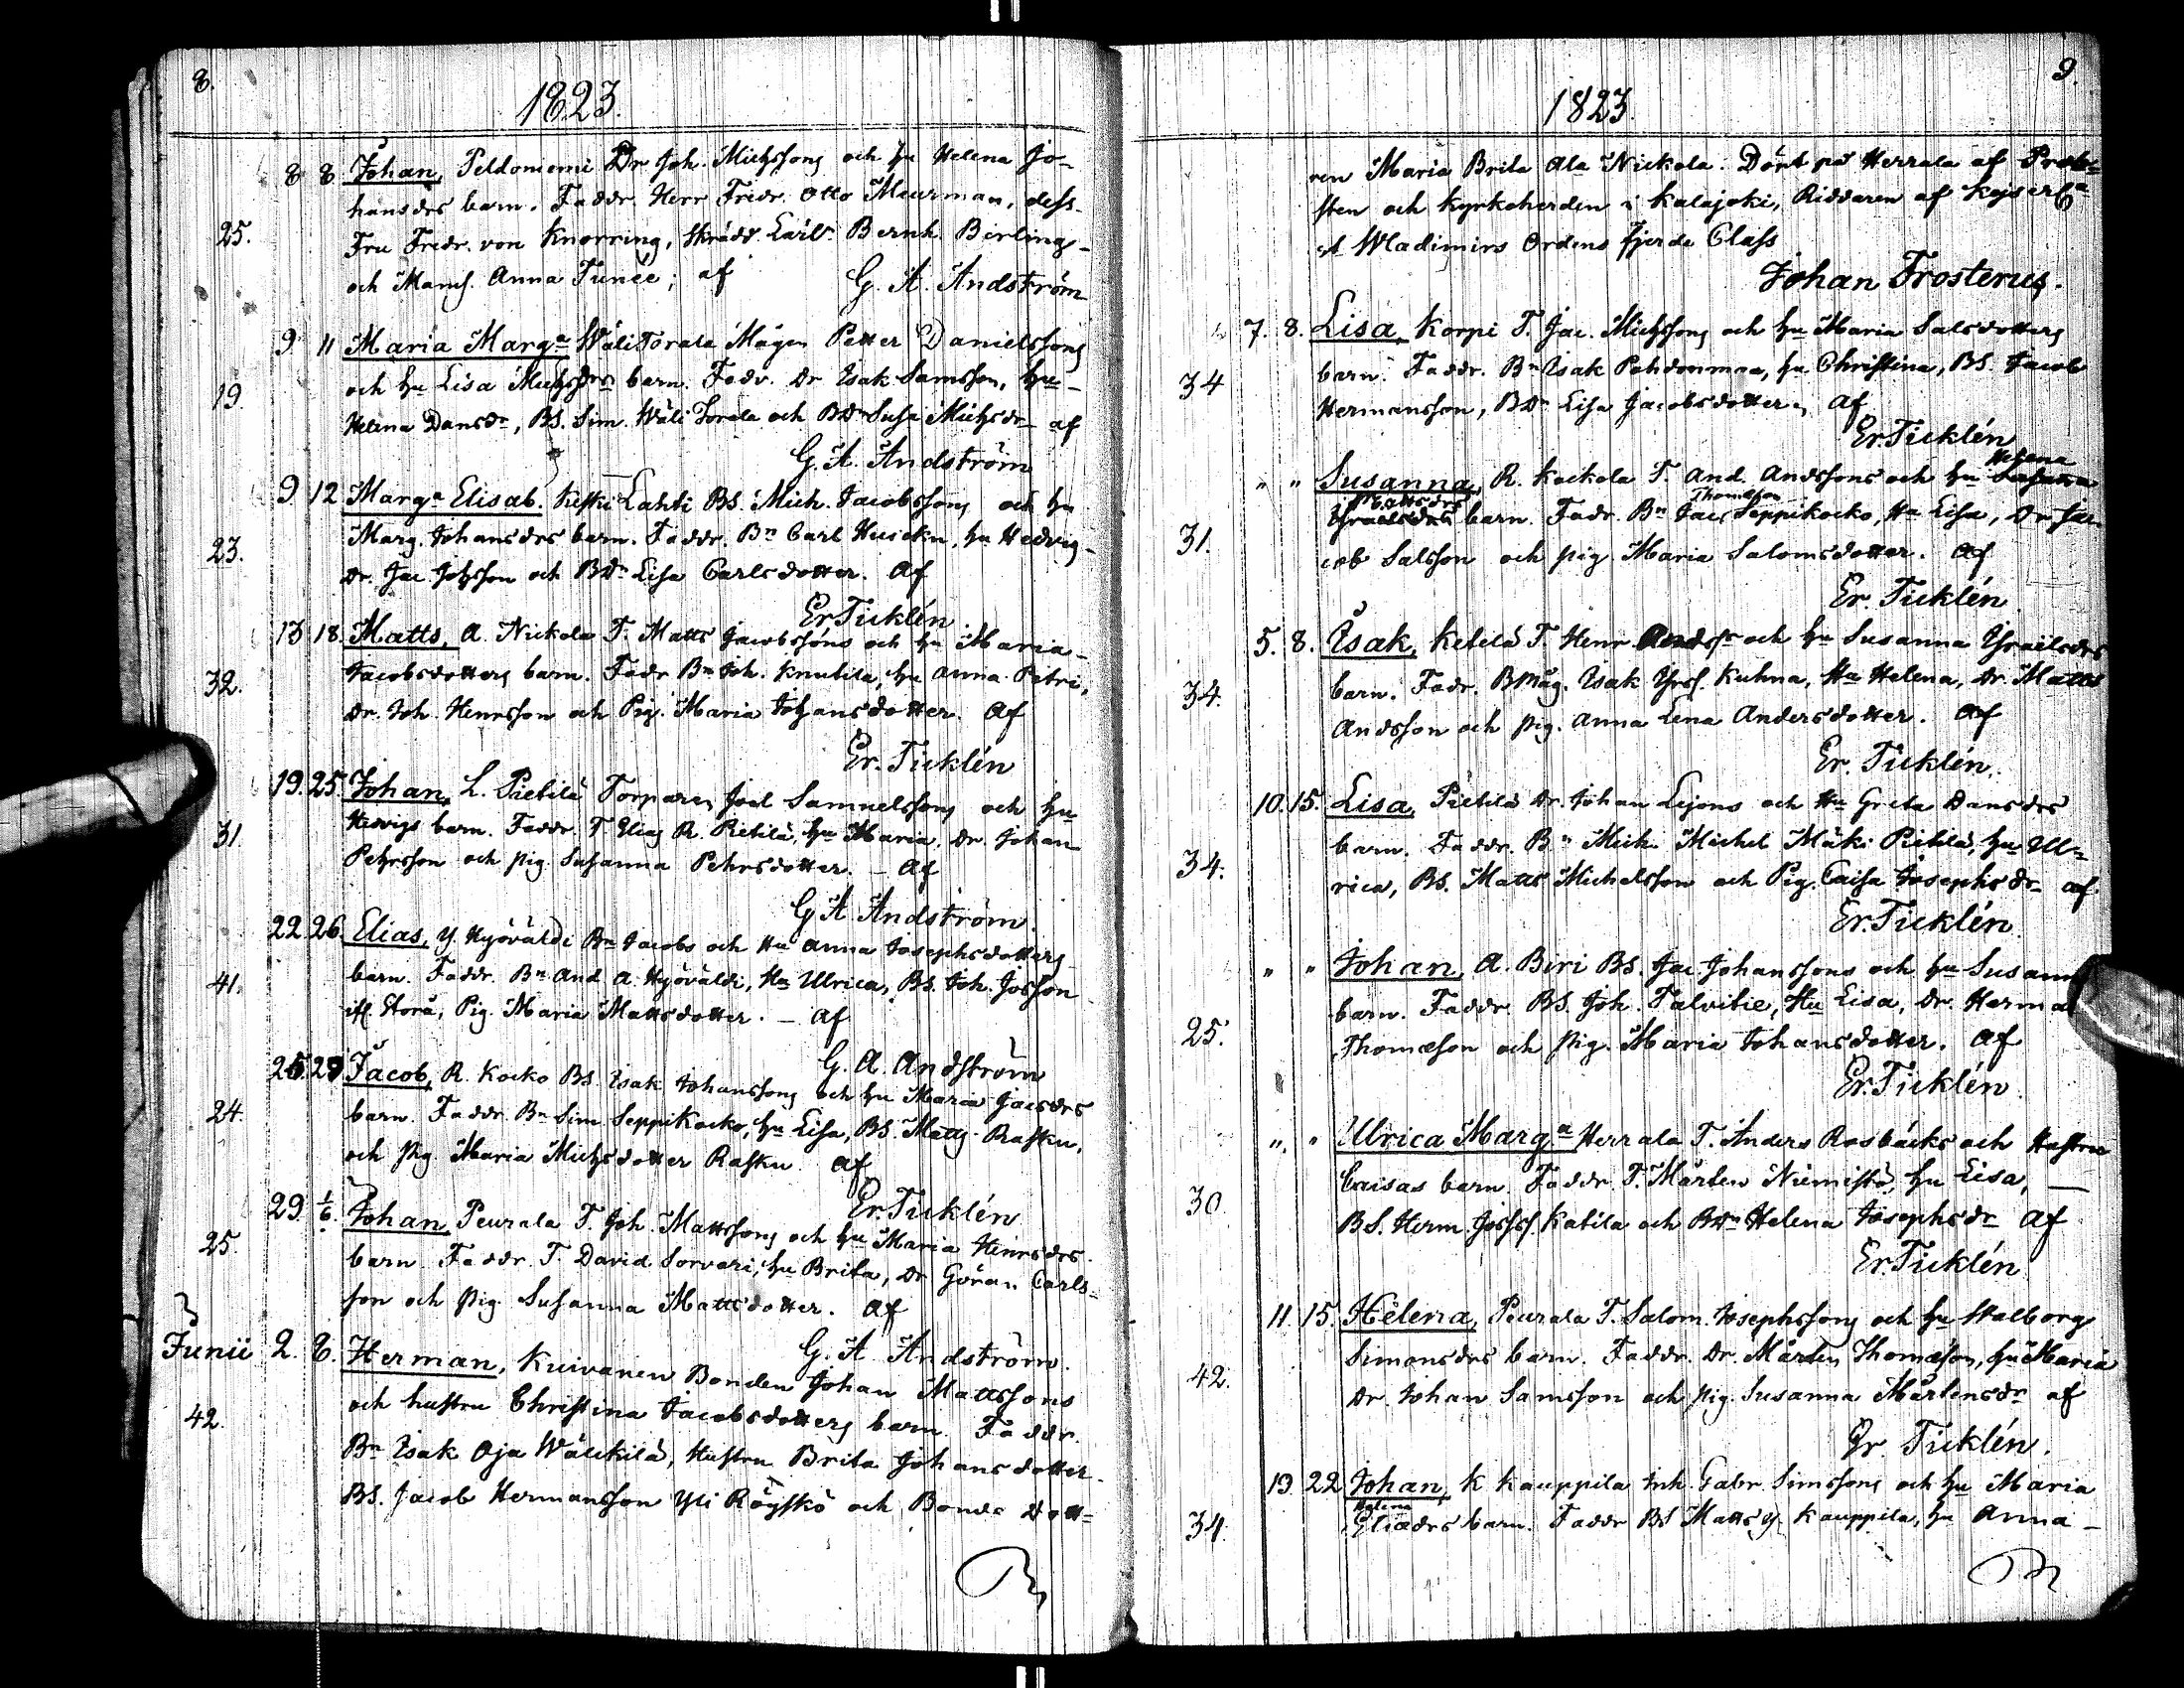 8.
1823.
8 8 Johan, Peldoniemi Dr Joh. Michssons och hu Helena Jo-
25. hansdrs barn. Faddr. Herr Fredr. Otto Meurman, dess
Fru Fredr. von Knorring, Skrädd. Bernh. Berling
och Mams. Anna Tunee; af G. A. Andström
9 11 Maria Marga WäliTorala Mågen Petter Danielssons
19. och hu Lisa Michsdrs barn. Fadr. Dr Isak Samsson, hu
Helena Dansdr, BS. Sim. Wäli Torala och BDr Susa Michsdr af
G. A. Andström
9 12 Marga Elisab. Keski Lahti BS. Mich. Jacobssons och hu
23. Marg. Johansdrs barn. Faddr. Bn Carl Huicku, hu Hedvig
Dr. Jac Johsson och BDr Lisa Carlsdotter. af
Er Ticklén
13 18. Matts, A. Nickola T. Matts Jacobssons och hu Maria
32. Jacobsdotters barn. Fadr Bn Joh. Knutila, hu Anna Petri,
Dr. Joh. Henrsson och Pig. Maria Johansdotter. af
Er. Ticklén
19. 25. Johan, L. Pietilä Torparen Joel Samuelssons och hu
31. Hedvigs barn. Faddr. T. Elias R. Pietilä, hu Maria, Dr. Johan
Pehrsson och pig. Susanna Pehrsdotter. — af
G A Andström.
22. 26. Elias, Y. Hyöväldi Bn Jacobs och Hu Anna Josephsdotters
41. barn. Faddr. Bn And. A. Hyöväldi, Hu Ulrica, BS. Joh. Josson
ifl. Storå, Pig. Maria Mattsdotter. — af
G. A. Andström
25 29 Jacob, R. Kocko BS. Isak Johanssons och hu Maria Jacsdrs
24. barn. Faddr. Bn Sim Seppikocko, hu Lisa, BS. Matts Rasku,
och pig. Maria Michsdotter Rasku. af
Er. Ticklén
29 1/6. Johan, Peurala T. Joh. Mattssons och hu Maria Henrsdrs
25. barn. Faddr. T. David Sorvari, hu Brita, Dr. Göran Carls-
son och pig. Susanna Mattsdotter. af
G. A. Andström.
Junii 2. 8. Herman, Kuivanen Bonden Johan Mattssons
42. och hustru Christina Jacobsdotters barn. Faddr.
Bn Isak Oja Wälikilä, Hustru Brita Johansdotter
BS. Jacob Hermansson Yli Röyskö och Bonde Dott-
9.
1823.
ren Maria Brita Ala Nickola. Döpt på Herrala af Prob-
sten och Kyrkoherden i Kalajoki, Riddaren af Kejserla
St Wladimirs Ordens fjerde Class
Johan Frosterus.
7. 8. Lisa, Korpi T. Jac. Michssons och hu Maria Salsdotters
34 barn. Faddr. Bn Isak Pahdonmaa, hu Christina, BS. Jacob
Hermansson, BDr Lisa Jacobsdotter, af
Er. Ticklén
Helena
" " Susanna, R. Kockola T. And. Andssons och hu Susanna
Mattsdrs Thomasson
31. Israelsdrs barn. Fadr. Bn Jac Seppikocko, Hu Lisa, Dr Ja-
cob Salsson och pig. Maria Salomsdotter. af
Er. Ticklén
5. 8. Isak, Ketelä T. Henr Andss och hu Susanna Israelsdrs
34. barn. Fadr. BMåg. Isak Kuhna, Hu Helena, Dr. Matts
Andsson och pig. Anna Lena Andersdotter. af
Er. Ticklén.
10. 15. Lisa, Pietilä Dr. Johan Lejons och Hu Greta Dansdrs
34. barn. Faddr. Bn Mich. Michel Mäki Pietilä, hu Ul-
rica, BS. Matts Michelsson och Pig. Caisa Josephsdr af
Er. Ticklén.
" " Johan, A. Biri BS. Jac. Johanssons och hu Susann
25. barn. Faddr. BS. Joh. Talvitie, Hu Lisa, Dr. Herma
Thomæson och pig. Maria Johansdotter. af
Er. Ticklén.
" " Ulrica Marga Herrala T. Anders Rosbäcks och Hustru
30 Caisas barn. Faddr. T. Mårten Niemistö, hu Lisa, —
BS. Herm. Josss. Katila och BDr Helena Josephsdr af
Er. Ticklén
11. 15. Helena, Peurala T. Salom. Josephssons och hu Walborg
42. Simonsdrs barn. Faddr. Dr. Mårten Thomæson, hu Maria
Dr. Johan Samsson och pig. Susanna Mårtensdr af
Er. Ticklén.
19 22 Johan, K Kauppila Inh. Gabr. Simssons och hu Maria
Helena
34. Eliædrs barn. Faddr BS Matts Y. Kauppila, hu Anna —